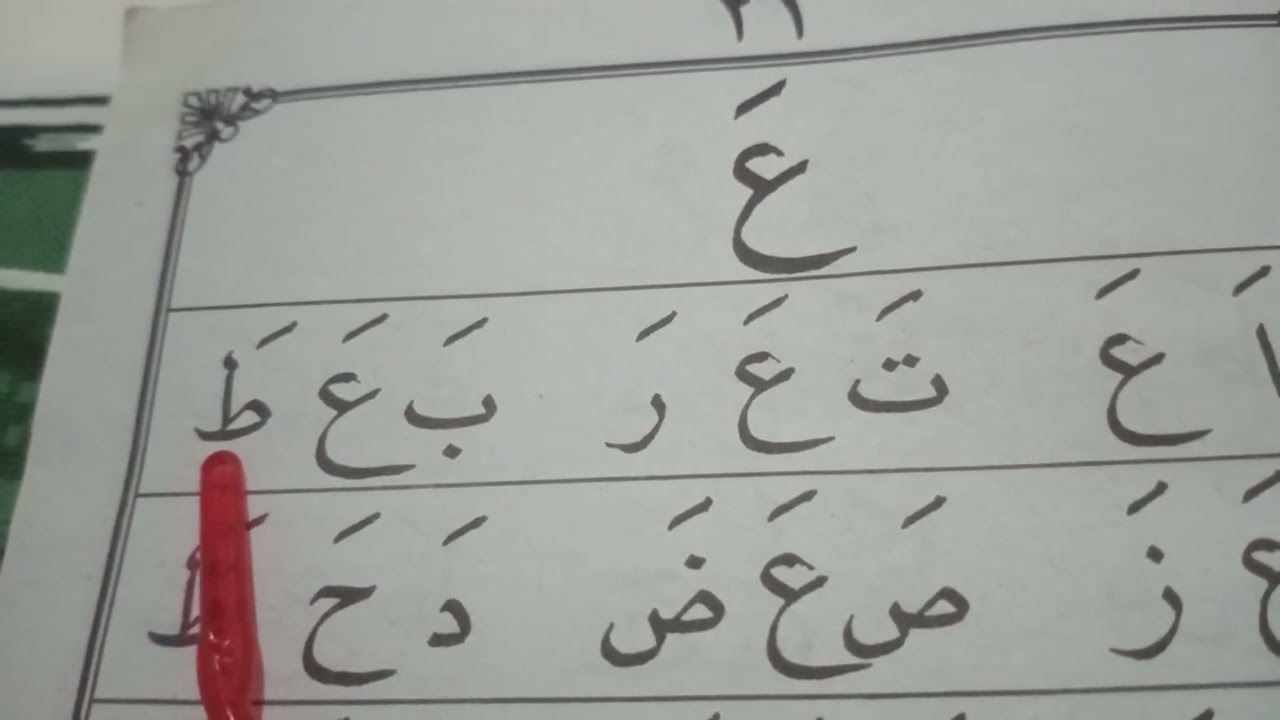 ٢٦
عَ
عَ تَ عَ رَ بَ عَ طَ
زَ صَ عَ ضَ دَ حَ